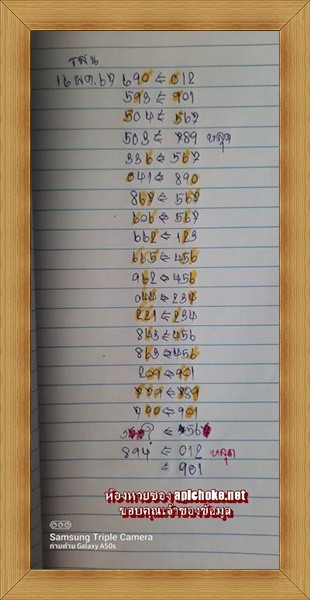 16 พ.ค. 67 690 ⇐ 012
593 ⇐ 901
504 ⇐ 567
503 ⇐ 789 หลุด
336 ⇐ 567
041 ⇐ 890
867 ⇐ 567
606 ⇐ 567
662 ⇔ 123
665 ⇔ 456
962 ⇔ 456
044 ⇔ 234
221 ⇐ 234
843 ⇐ 456
863 ⇔ 456
209 ⇔ 901
779 ⇐ 789
790 ⇔ 901
⇐ 567
894 ⇐ 012 หลุด
= 901
ห้องหวยซอง apichoke.net
ขอบคุณเจ้าของข้อมูล
Samsung Triple Camera
ถ่ายด้วย Galaxy A50s